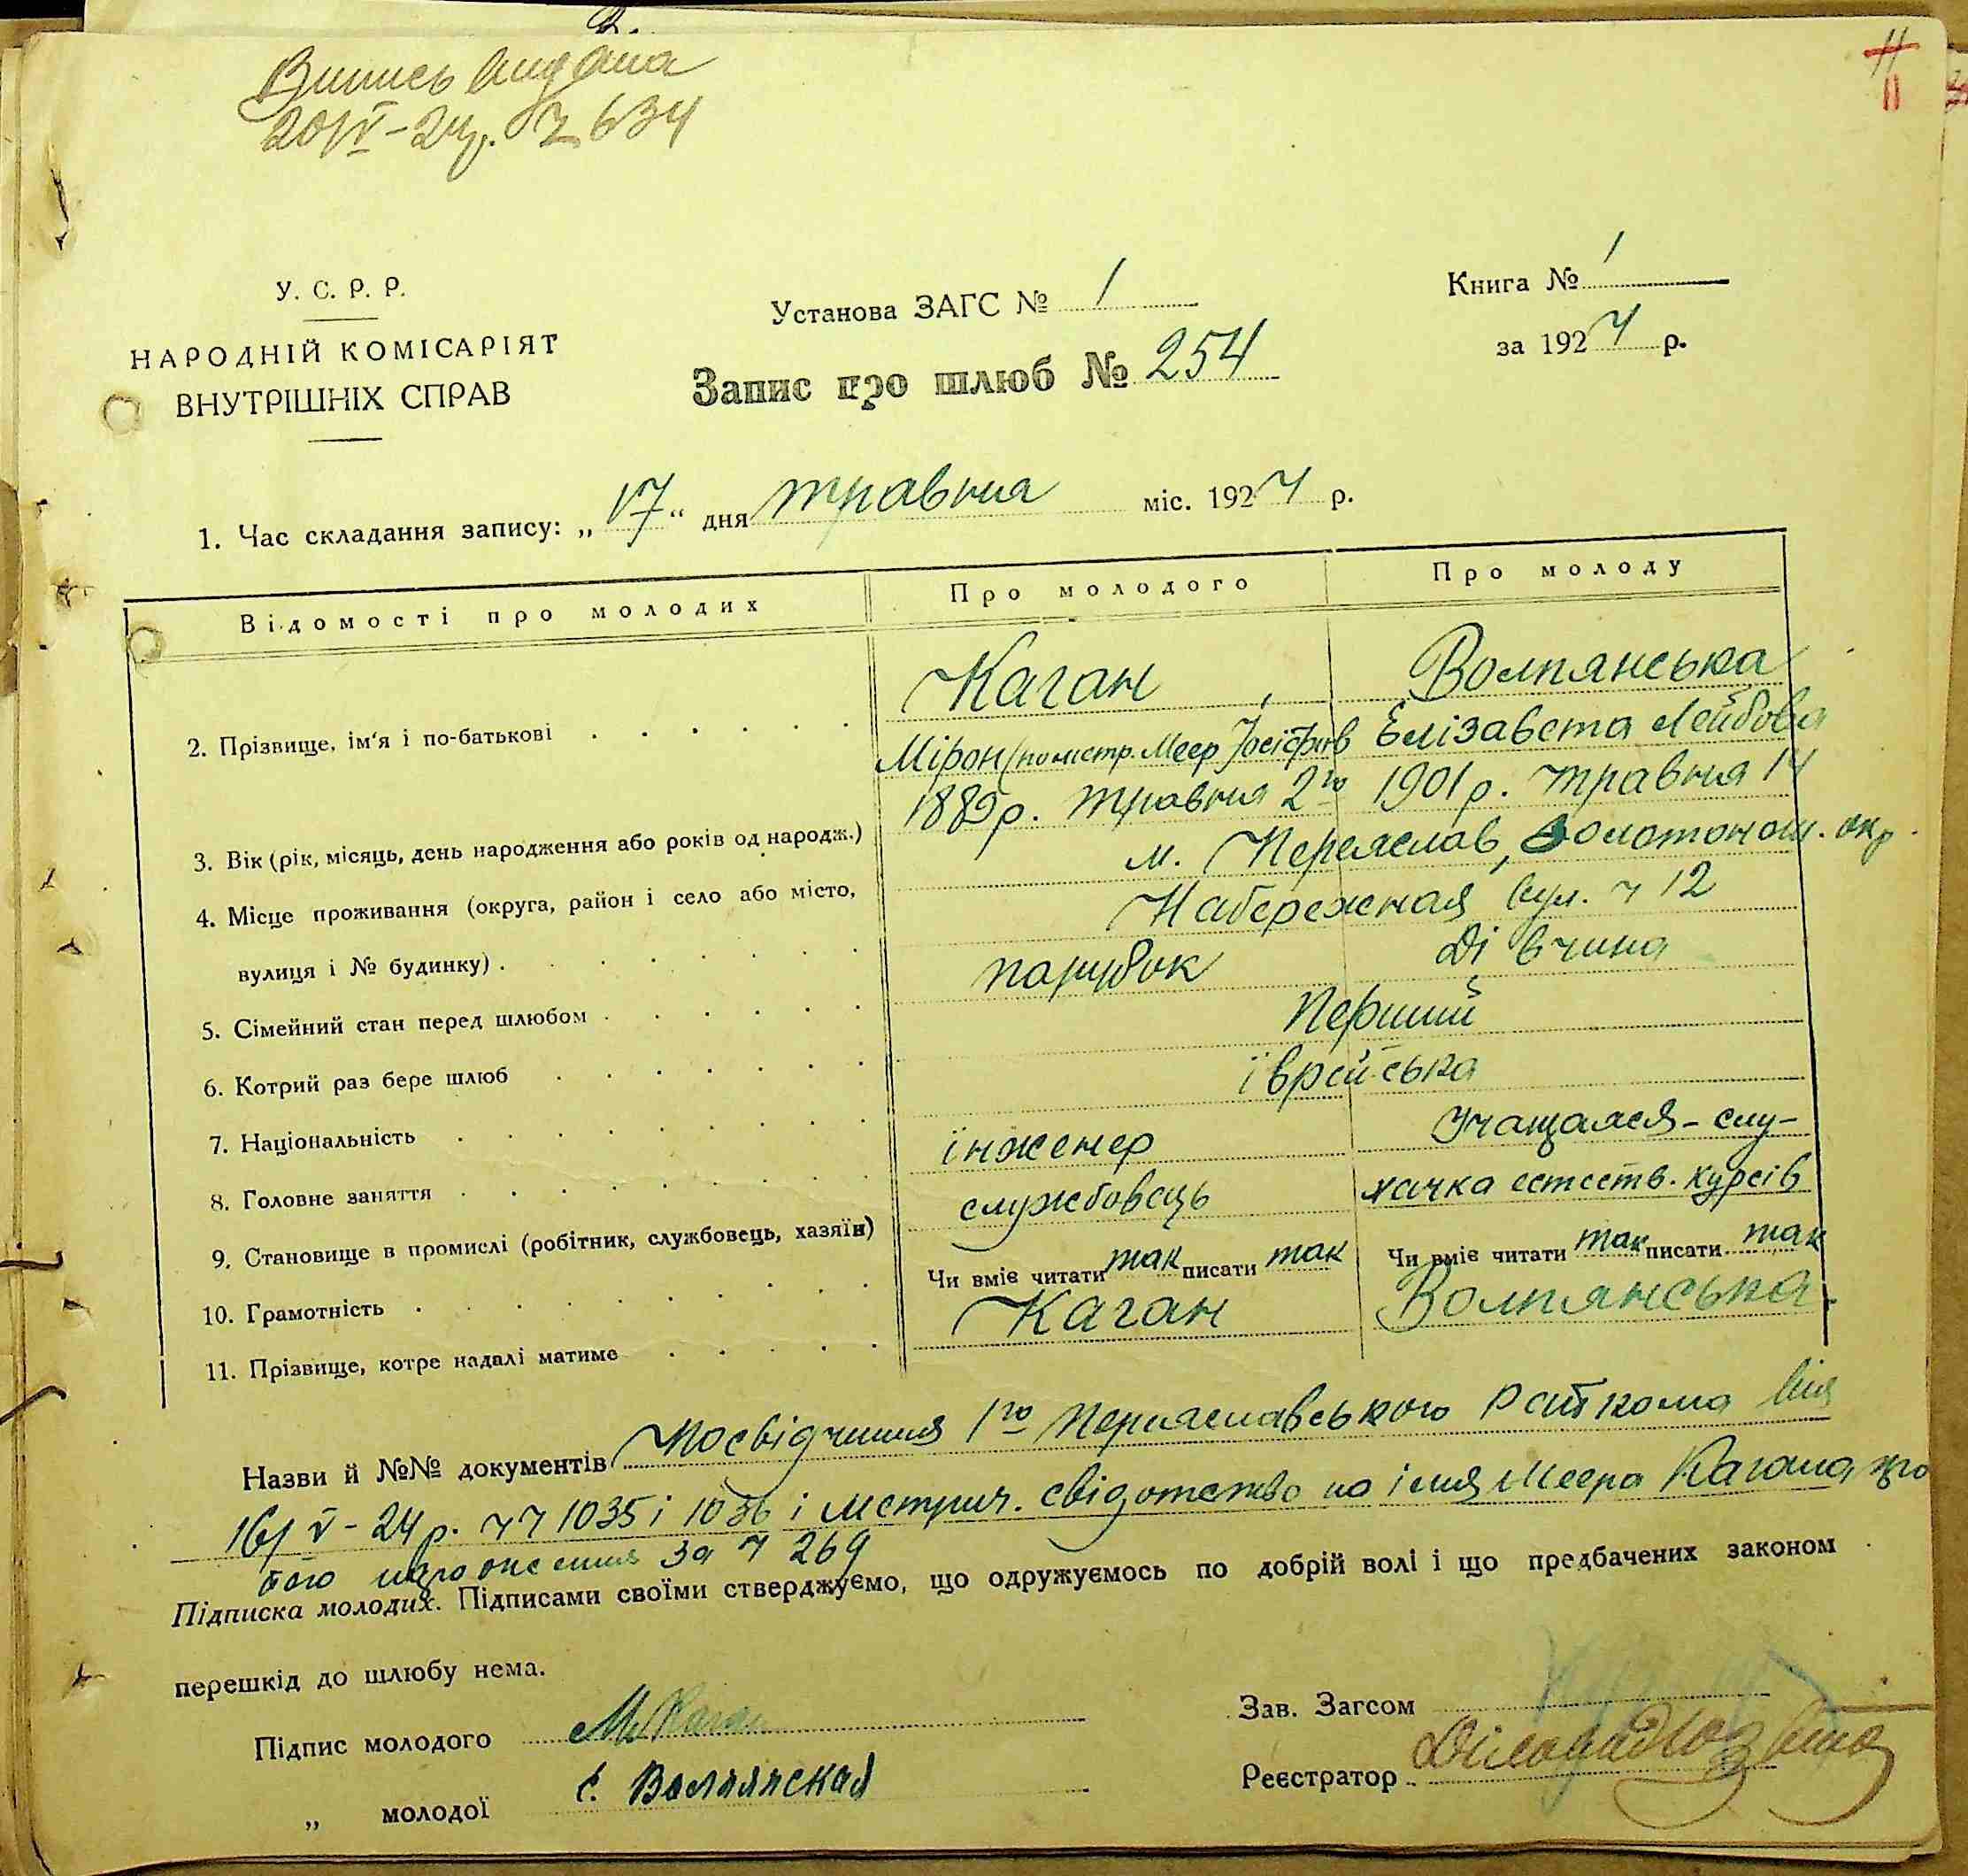 Випись видана
20/V-24р. ч 634
11
11
У. С. Р. Р.
НАРОДНІЙ КОМІСАРІЯТ
ВНУТРІШНІХ СПРАВ
Установа ЗАГС № 1
Запис про шлюб № 254
Книга № 1
за 1924 р.
1. Час складання запису: „17“ дня травня міс. 1924 р.
Відомості про молодих
Про молодого
Про молоду
2. Прізвище, ім'я і по-батькові
Каган
Волпянська
Мірон (по метр. Меер Іосіфов
Елізавета Лейбова
3. Вік (рік, місяць, день народження або років од народж.)
1889р. травня 2го
1901р. травня 14
4. Місце проживання (округа, район і село або місто,
вулиця і № будинку)
м. Переяслав, Золотонош. окр.
Набережная вул. ч 12
5. Сімейний стан перед шлюбом
парубок
Дівчина
6. Котрий раз бере шлюб
Перший
7. Національність
їврейська
8. Головне заняття
інженер
Учащаяся-слу-
9. Становище в промислі (робітник, службовець, хазяїн)
службовець
хачка естеств. курсів
10. Грамотність
Чи вміє читати так писати так
Чи вміє читати так писати так
11. Прізвище, котре надалі матиме
Каган
Волпянська
Назви й №№ документів Посвідчення 1го Переяславського
16/V-24р. чч 1035 і 1036 і метрич. свідотство на імя Меера Кагана
за ч 269
Підписка молодих. Підписами своїми стверджуємо, що одружуємось по добрій волі і що предбачених законом
перешкід до шлюбу нема.
Підпис молодого М. Каган
„ молодої Е. Волпянская
Зав. Загсом
Реєстратор